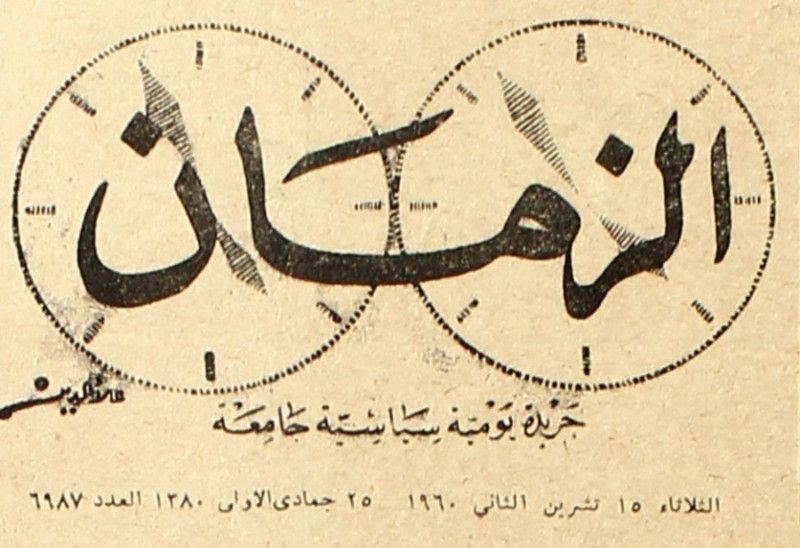 الزمان
جَريْدة يَوْميّة سِيَاسيّة جَامِعَة
الثلاثاء ١٥ تشرين الثاني ١٩٦٠ ٢٥ جمادى الاولى ١٣٨٠ العدد ٦٩٨٧